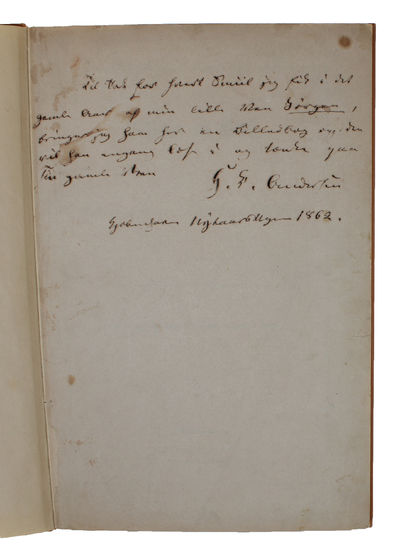 Til Tak for hvert Smiil jeg fik i det
gamle Aar af min lille Ven Jörgen,
bringer jeg ham her en Billedbog, den
vil han engang læse i og tænke paa
sin gamle Ven
H. C. Andersen
Kjöbenhavn Nytaarsmorgen 1862.